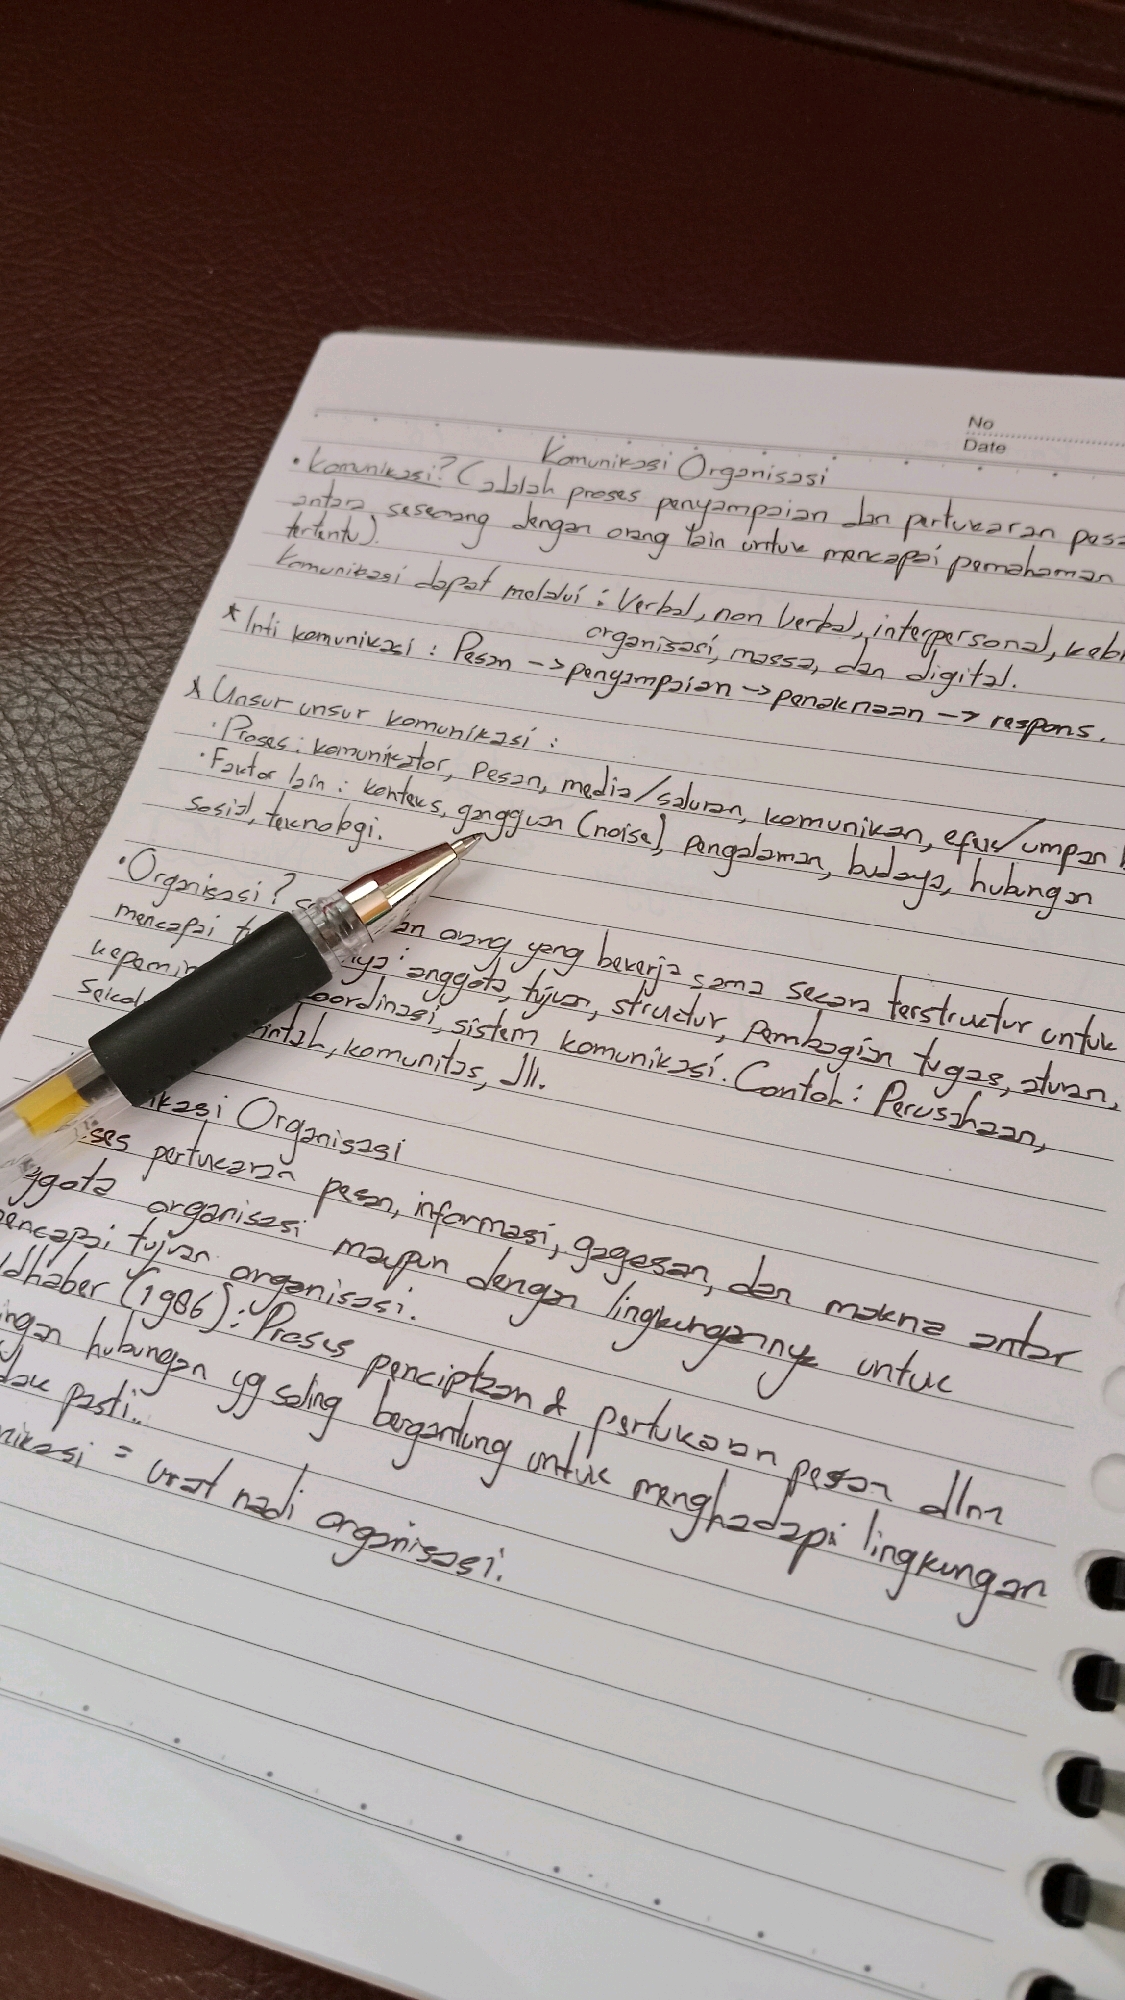 No
Date
Komunikasi Organisasi
• Komunikasi? (adalah proses penyampaian dan pertukaran
antara seseorang dengan orang lain untuk mencapai pemahaman
tertentu).
Komunikasi dapat melalui : Verbal, non verbal, interpersonal,
organisasi, massa, dan digital.
* Inti komunikasi : Pesan -> pengampaian -> penaknaan -> respons.
* Unsur unsur komunikasi :
• Proses : komunikator, pesan, media/saluran, komunikan, efek/umpan
• Faktor lain : konteks, gangguan (noise), pengalaman, budaya, hubungan
sosial, teknologi.
• Organisasi?
orang yang bekerja sama secara terstruktur untuk
mencapai
anggota, tujuan, structur, pembagian tugas, aturan,
sistem komunikasi. Contoh : Perusahaan,
komunitas, dll.
Organisasi
pertukaran pesan, informasi, gagasan, dan makna antar
organisasi maupun dengan lingkungannya untuk
tujuan organisasi.
(1986) : Proses penciptaan & pertukaran pesan dlm
hubungan yg saling bergantung untuk menghadapi lingkungan
pasti..
= urat nadi organisasi.